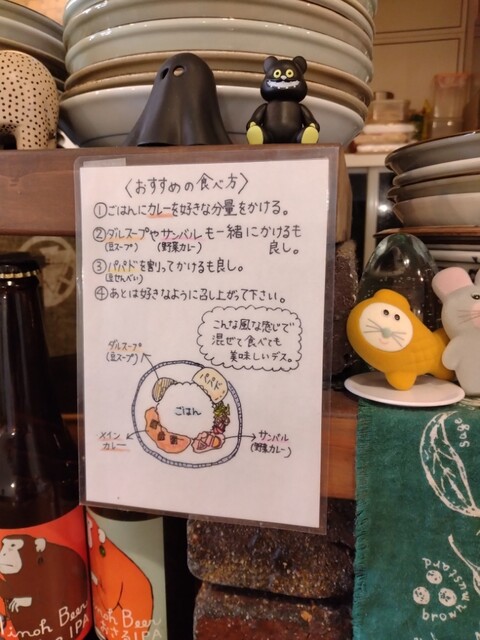 〈おすすめの食べ方〉
①ごはんにカレーを好きな分量をかける。
②ダルスープやサンバルも一緒にかけるも
(豆スープ) (野菜カレー)
良し。
③パパドを割ってかけるも良し。
(豆せんべい)
④あとは好きなように召し上がって下さい。
こんな風な感じで
混ぜて食べても
美味しいデス。
ダルスープ
(豆スープ)
パパド
ごはん
メイン
カレー
サンバル
(野菜カレー)
sage
brown mustard
inoh Beer
IPA
noh Beer
おさるIPA